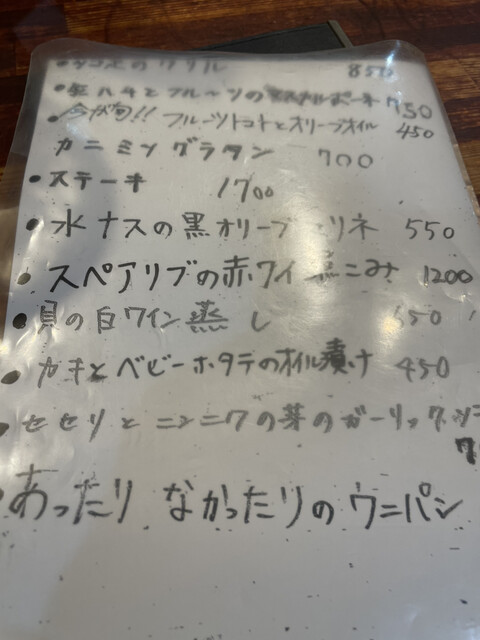 850
生ハムとフルーツの 750
今が旬!! フルーツトマトとオリーブオイル 450
カニミソグラタン 700
ステーキ 1700
水ナスの黒オリーブ リネ 550
スペアリブの赤ワイン煮こみ 1200
貝の白ワイン蒸し 650
カキとベビーホタテのオイル漬け 450
セセリとニンニクの芽のガーリック
あったりなかったりのウニパン